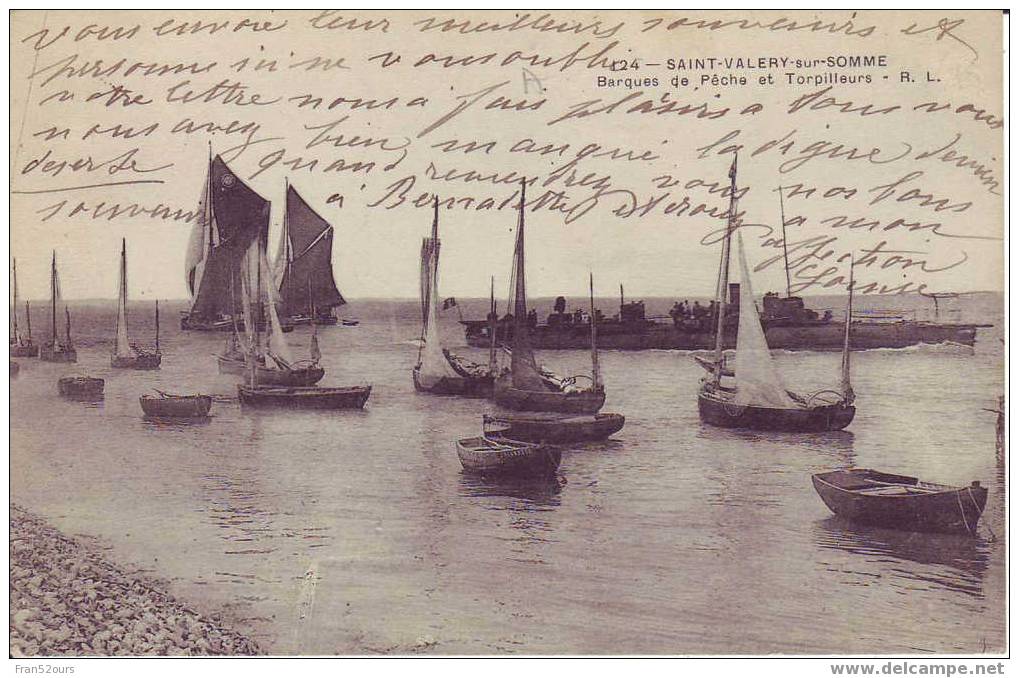 vous envoie leur meilleurs souvenirs et
personne ici ne vous oublie
124 — SAINT-VALERY-sur-SOMME
Barques de Pêche et Torpilleurs - R. L.
A
votre lettre nous a fais plaisirs a tous vous
nous avez bien manqué la digue devien
deserte quand remendrez vous nos bons
souvenirs à Bernadette et a mon
affection
Fran52ours
www.delcampe.net